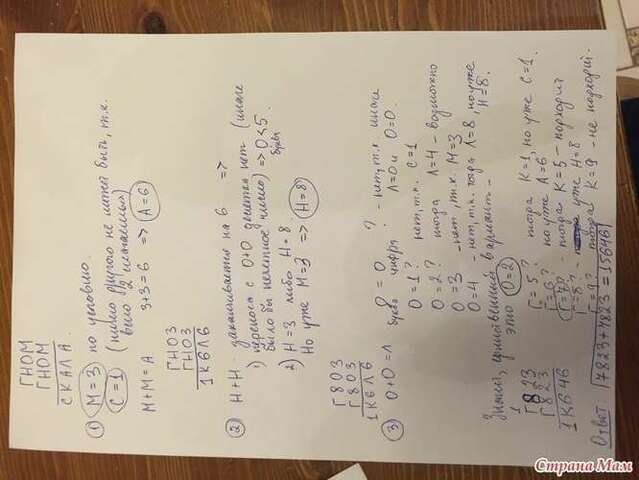 ГНОМ
ГНОМ
СКАЛА
① М=3 по условию.
С=1 (никто другого не может быть, т.к.
было 2 слагаемых)
М+М=А 3+3=6 => А=6
ГНО3
ГНО3
1К6Л6
② Н+Н заканчивается на 6 =>
1) переноса с О+О десятка нет (иначе
было бы нечетное число) => О<5
буква
2) Н=3 либо Н=8
Но уже М=3 => Н=8
Г8О3
Г8О3
1К6Л6
③ О+О=Л
О=0 ? - нет, т.к. иначе
буква цифра Л=0 и О=0.
О=1? нет, т.к. С=1
О=2? тогда Л=4 - возможно
О=3 - нет, т.к. М=3
О=4 - нет, т.к. тогда Л=8, но уже
Н=8.
Значит, единственный вариант -
это О=2
1
Г823
Г823
1К646
Г=5? тогда К=1, но уже С=1.
Г=6? но уже А=6,
Г=7? - тогда К=5 - подходит
Г=8? - уже Н=8
Г=9? тогда К=9 - не подходит.
Ответ: 7823+7823=15646!
Страна Мам